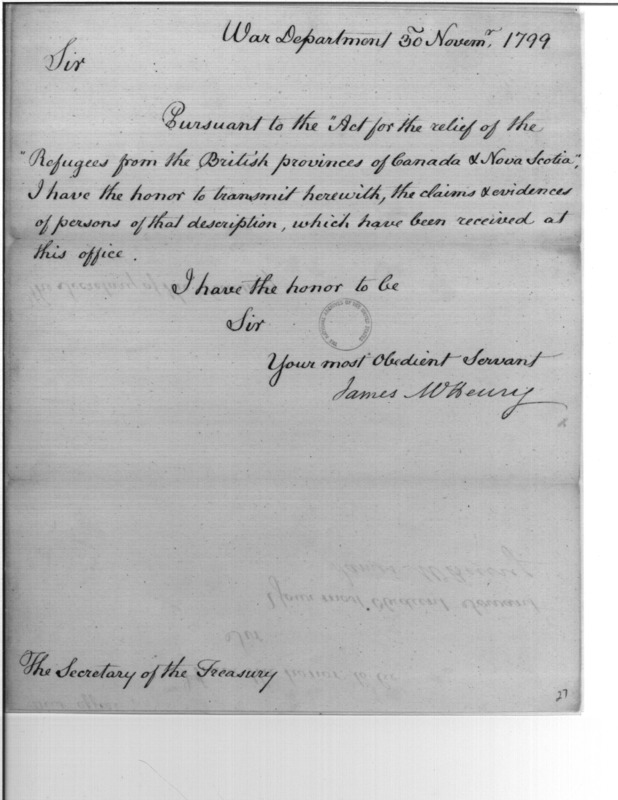 War Department 30 Novemr. 1799
Sir
Pursuant to the "Act for the relief of the
"Refugees from the British provinces of Canada & Nova Scotia",
I have the honor to transmit herewith, the claims & evidences
of persons of that description, which have been received at
this office.
I have the honor to be
Sir
Your most Obedient Servant
James McHenry
The Secretary of the Treasury
27